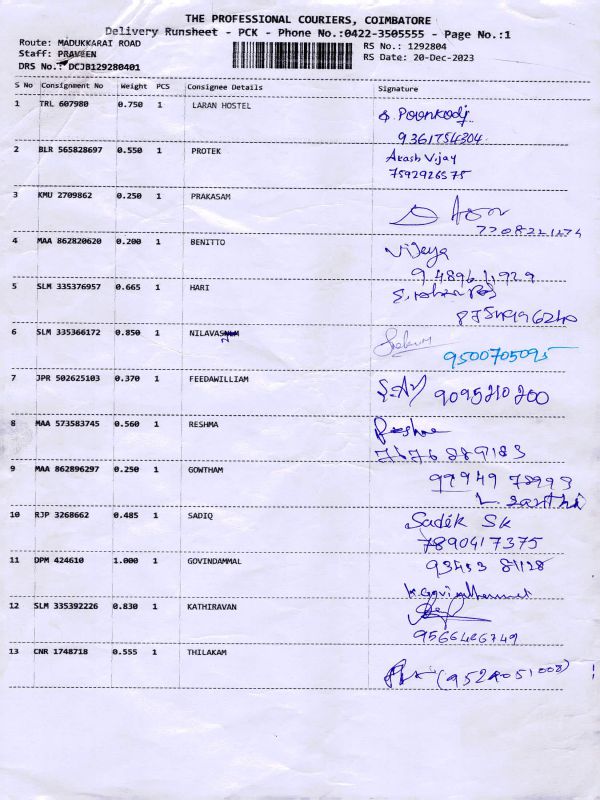 THE PROFESSIONAL COURIERS, COIMBATORE
Delivery Runsheet - PCK - Phone No.:0422-3505555 - Page No.:1
Route: MADUKKARAI ROAD RS No.: 1292804
Staff: PRAVEEN RS Date: 20-Dec-2023
DRS No.: DCJB129280401
S No Consignment No Weight PCS Consignee Details Signature
1 TRL 607980 0.750 1 LARAN HOSTEL
9361754304
2 BLR 565828697 0.550 1 PROTEK Akash Vijay
7592926575
3 KMU 2709862 0.250 1 PRAKASAM
4 MAA 862820620 0.200 1 BENITTO Vijaya
5 SLM 335376957 0.665 1 HARI
6 SLM 335366172 0.850 1
9500705095
7 JPR 502625103 0.370 1 FEEDAWILLIAM
9095210200
8 MAA 573583745 0.560 1 RESHMA Reshma
7676889183
9 MAA 862896297 0.250 1 GOWTHAM 99949 78993
10 RJP 3268662 0.485 1 SADIQ Sadik Sk
7890417375
11 DPM 424610 1.000 1 GOVINDAMMAL
12 SLM 335392226 0.830 1 KATHIRAVAN
9566466749
13 CNR 1748718 0.555 1 THILAKAM